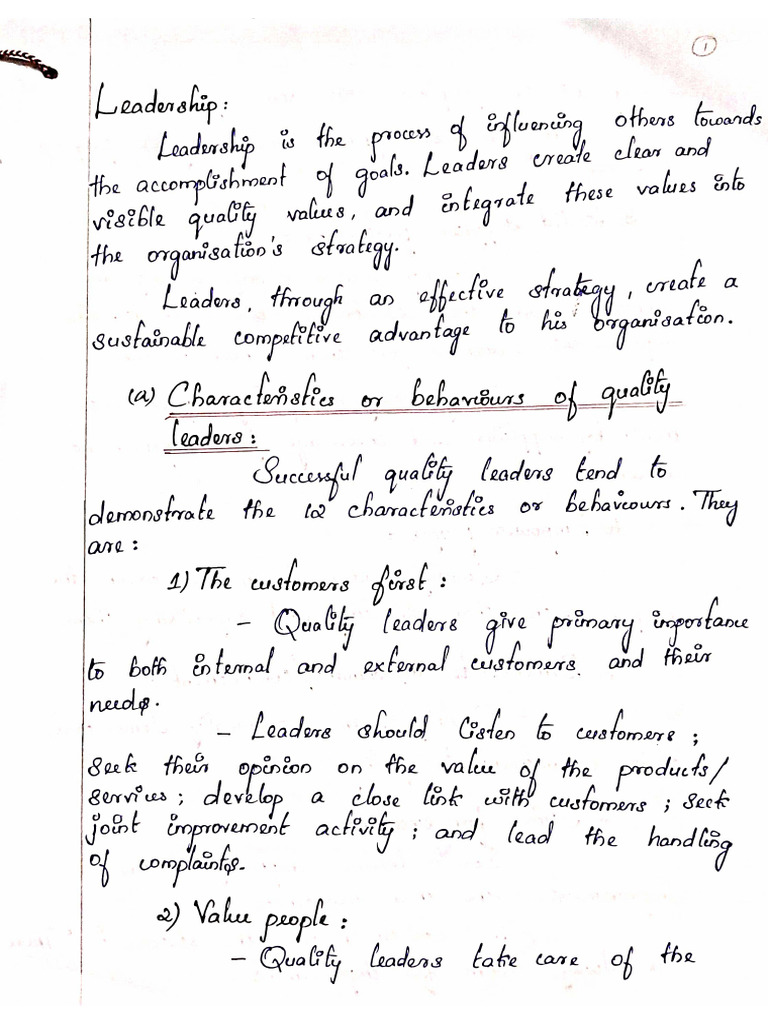 1
Leadership:
Leadership is the process of influencing others towards
the accomplishment of goals. Leaders create clear and
visible quality values, and integrate these values into
the organisation's strategy.
Leaders, through an effective strategy, create a
sustainable competitive advantage to his organisation.
(a) Characteristics or behaviours of quality
leaders:
Successful quality leaders tend to
demonstrate the 12 characteristics or behaviours. They
are:
1) The customers first:
- Quality leaders give primary importance
to both internal and external customers and their
needs.
- Leaders should listen to customers;
seek their opinion on the value of the products/
services; develop a close link with customers; seek
joint improvement activity; and lead the handling
of complaints.
2) Value people:
- Quality leaders take care of the